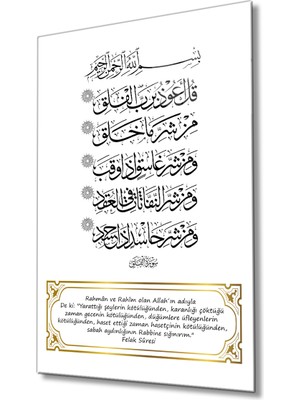 بسم الله الرحمن الرحيم
قل أعوذ برب الفلق
من شر ما خلق
ومن شر غاسق إذا وقب
ومن شر النفاثات في العقد
ومن شر حاسد إذا حسد
Rahmân ve Rahîm olan Allah'ın adıyla
De ki: "Yarattığı şeylerin kötülüğünden, karanlığı çöktüğü
zaman gecenin kötülüğünden, düğümlere üfleyenlerin
kötülüğünden, haset ettiği zaman hasetçinin kötülüğünden,
sabah aydınlığının Rabbine sığınırım."
Felak Sûresi